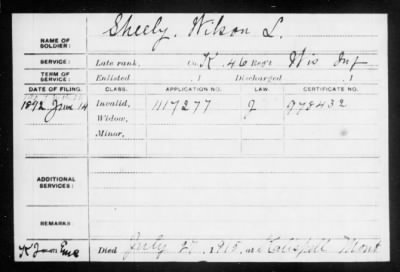 NAME OF SOLDIER: Sheely, Wilson L.
SERVICE: Late rank, Co K. 46 Reg't Wis Inf
TERM OF SERVICE: Enlisted , 1 Discharged , 1
DATE OF FILING. CLASS. APPLICATION NO. LAW. CERTIFICATE NO.
1892 June 14 Invalid, 1117277 J 978432
Widow,
Minor,
ADDITIONAL SERVICES:
REMARKS:
Died July 27, 1915, at Kalispell Mont